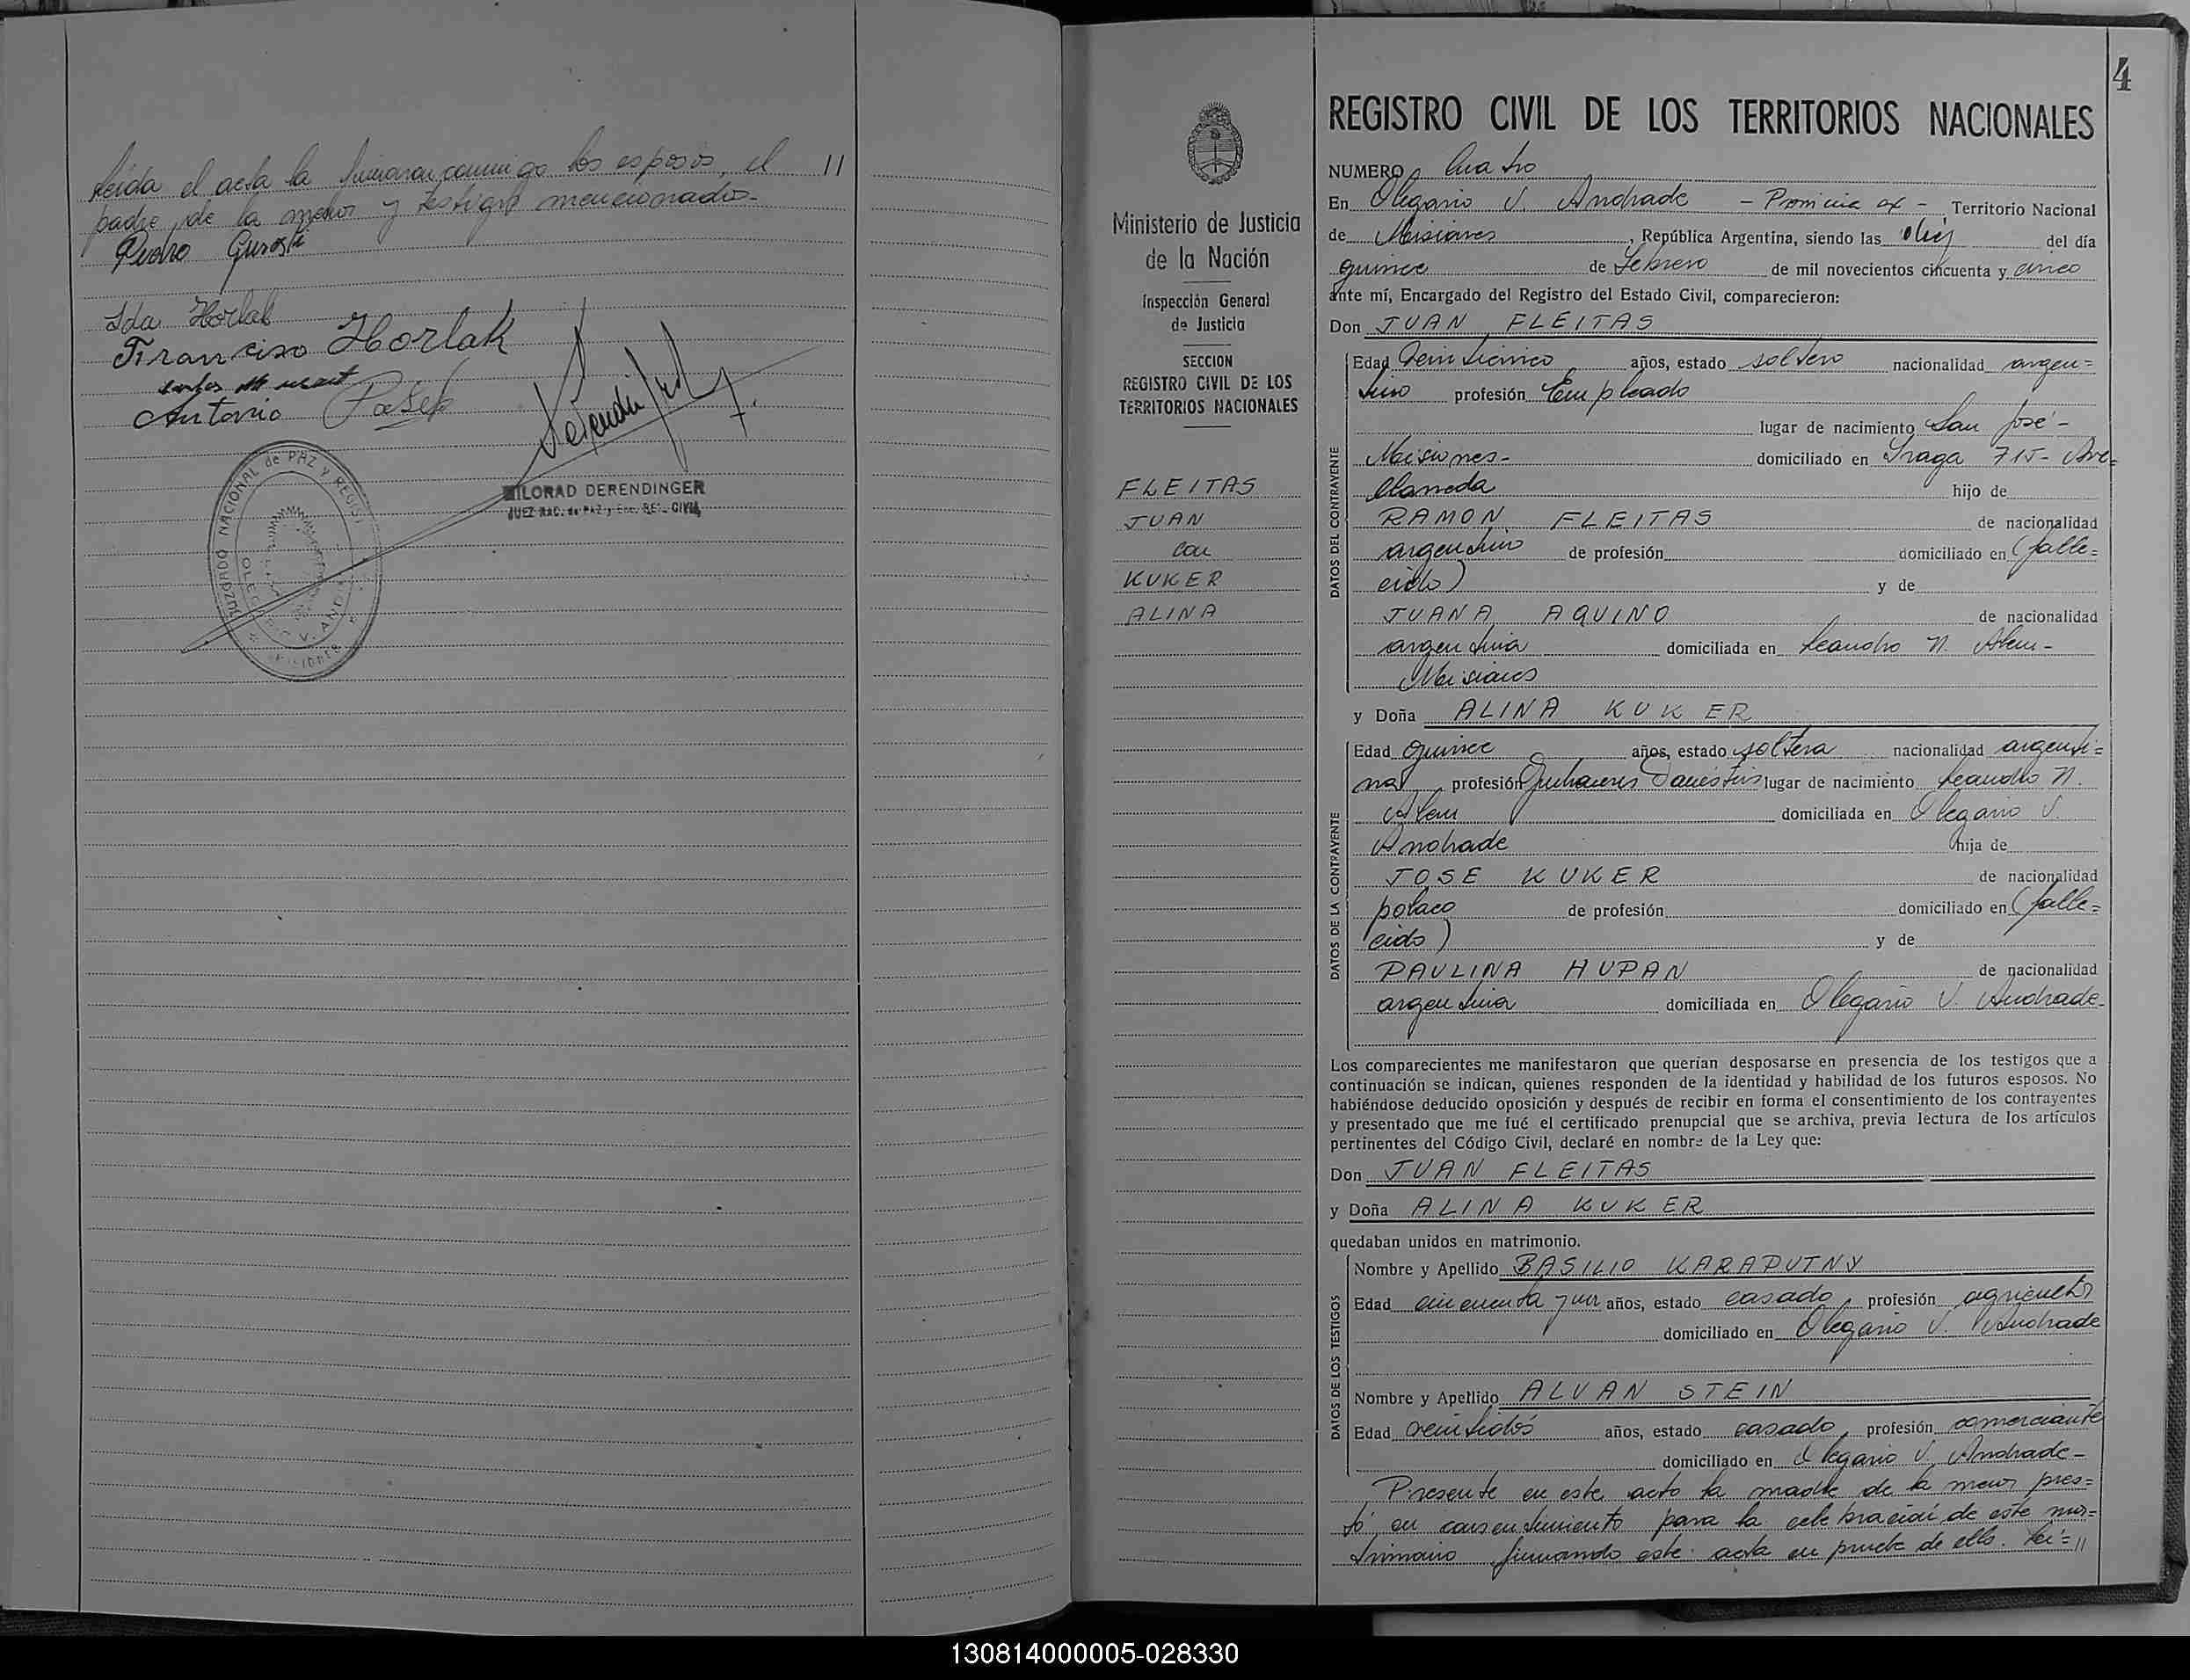 Leída el acta la firmaron conmigo los esposos, el //
padre de la menor y testigos mencionados-
Pedro
Ida Horlak
Francisco Horlak
Antonio
JUZGADO NACIONAL de PAZ Y
V. AND
MISIONES
MILORAD DERENDINGER
JUEZ NAC. de PAZ y Enc. REG. CIVIL
4
Ministerio de Justicia
de la Nación
Inspección General
de Justicia
SECCION
REGISTRO CIVIL DE LOS
TERRITORIOS NACIONALES
FLEITAS
JUAN
con
KUKER
ALINA
REGISTRO CIVIL DE LOS TERRITORIOS NACIONALES
NUMERO Cuatro
En Olegario V. Andrade - Provincia ex - , Territorio Nacional
de Misiones , República Argentina, siendo las diez del día
quince de Febrero de mil novecientos cincuenta y cinco
ante mí, Encargado del Registro del Estado Civil, comparecieron:
Don JUAN FLEITAS
DATOS DEL CONTRAYENTE
Edad Veinticinco años, estado soltero nacionalidad argen=
tino profesión Empleado
lugar de nacimiento San José-
Misiones- domiciliado en 715- Ave=
llaneda hijo de
RAMON FLEITAS de nacionalidad
argentino de profesión domiciliado en (falle=
cido) y de
JUANA AQUINO de nacionalidad
argentina domiciliada en Leandro N. Alem-
Misiones
y Doña ALINA KUKER
DATOS DE LA CONTRAYENTE
Edad quince años, estado soltera nacionalidad argenti=
na profesión lugar de nacimiento Leandro N.
Alem domiciliada en Olegario V.
Andrade hija de
JOSE KUKER de nacionalidad
polaco de profesión domiciliado en (falle=
cido) y de
PAULINA HUPAN de nacionalidad
argentina domiciliada en Olegario V. Andrade-
Los comparecientes me manifestaron que querían desposarse en presencia de los testigos que a
continuación se indican, quienes responden de la identidad y habilidad de los futuros esposos. No
habiéndose deducido oposición y después de recibir en forma el consentimiento de los contrayentes
y presentado que me fué el certificado prenupcial que se archiva, previa lectura de los artículos
pertinentes del Código Civil, declaré en nombre de la Ley que:
Don JUAN FLEITAS
y Doña ALINA KUKER
quedaban unidos en matrimonio.
DATOS DE LOS TESTIGOS
Nombre y Apellido BASILIO KARAPUTNY
Edad cincuenta y un años, estado casado profesión agricultor
domiciliado en Olegario V. Andrade
Nombre y Apellido ALVAN STEIN
Edad veintidós años, estado casado, profesión comerciante
domiciliado en Olegario V. Andrade-
Presente en este acto la madre de la menor pres=
tó su consentimiento para la celebración de este ma=
trimonio firmando este acta en prueba de ello. Leí= //
130814000005-028330